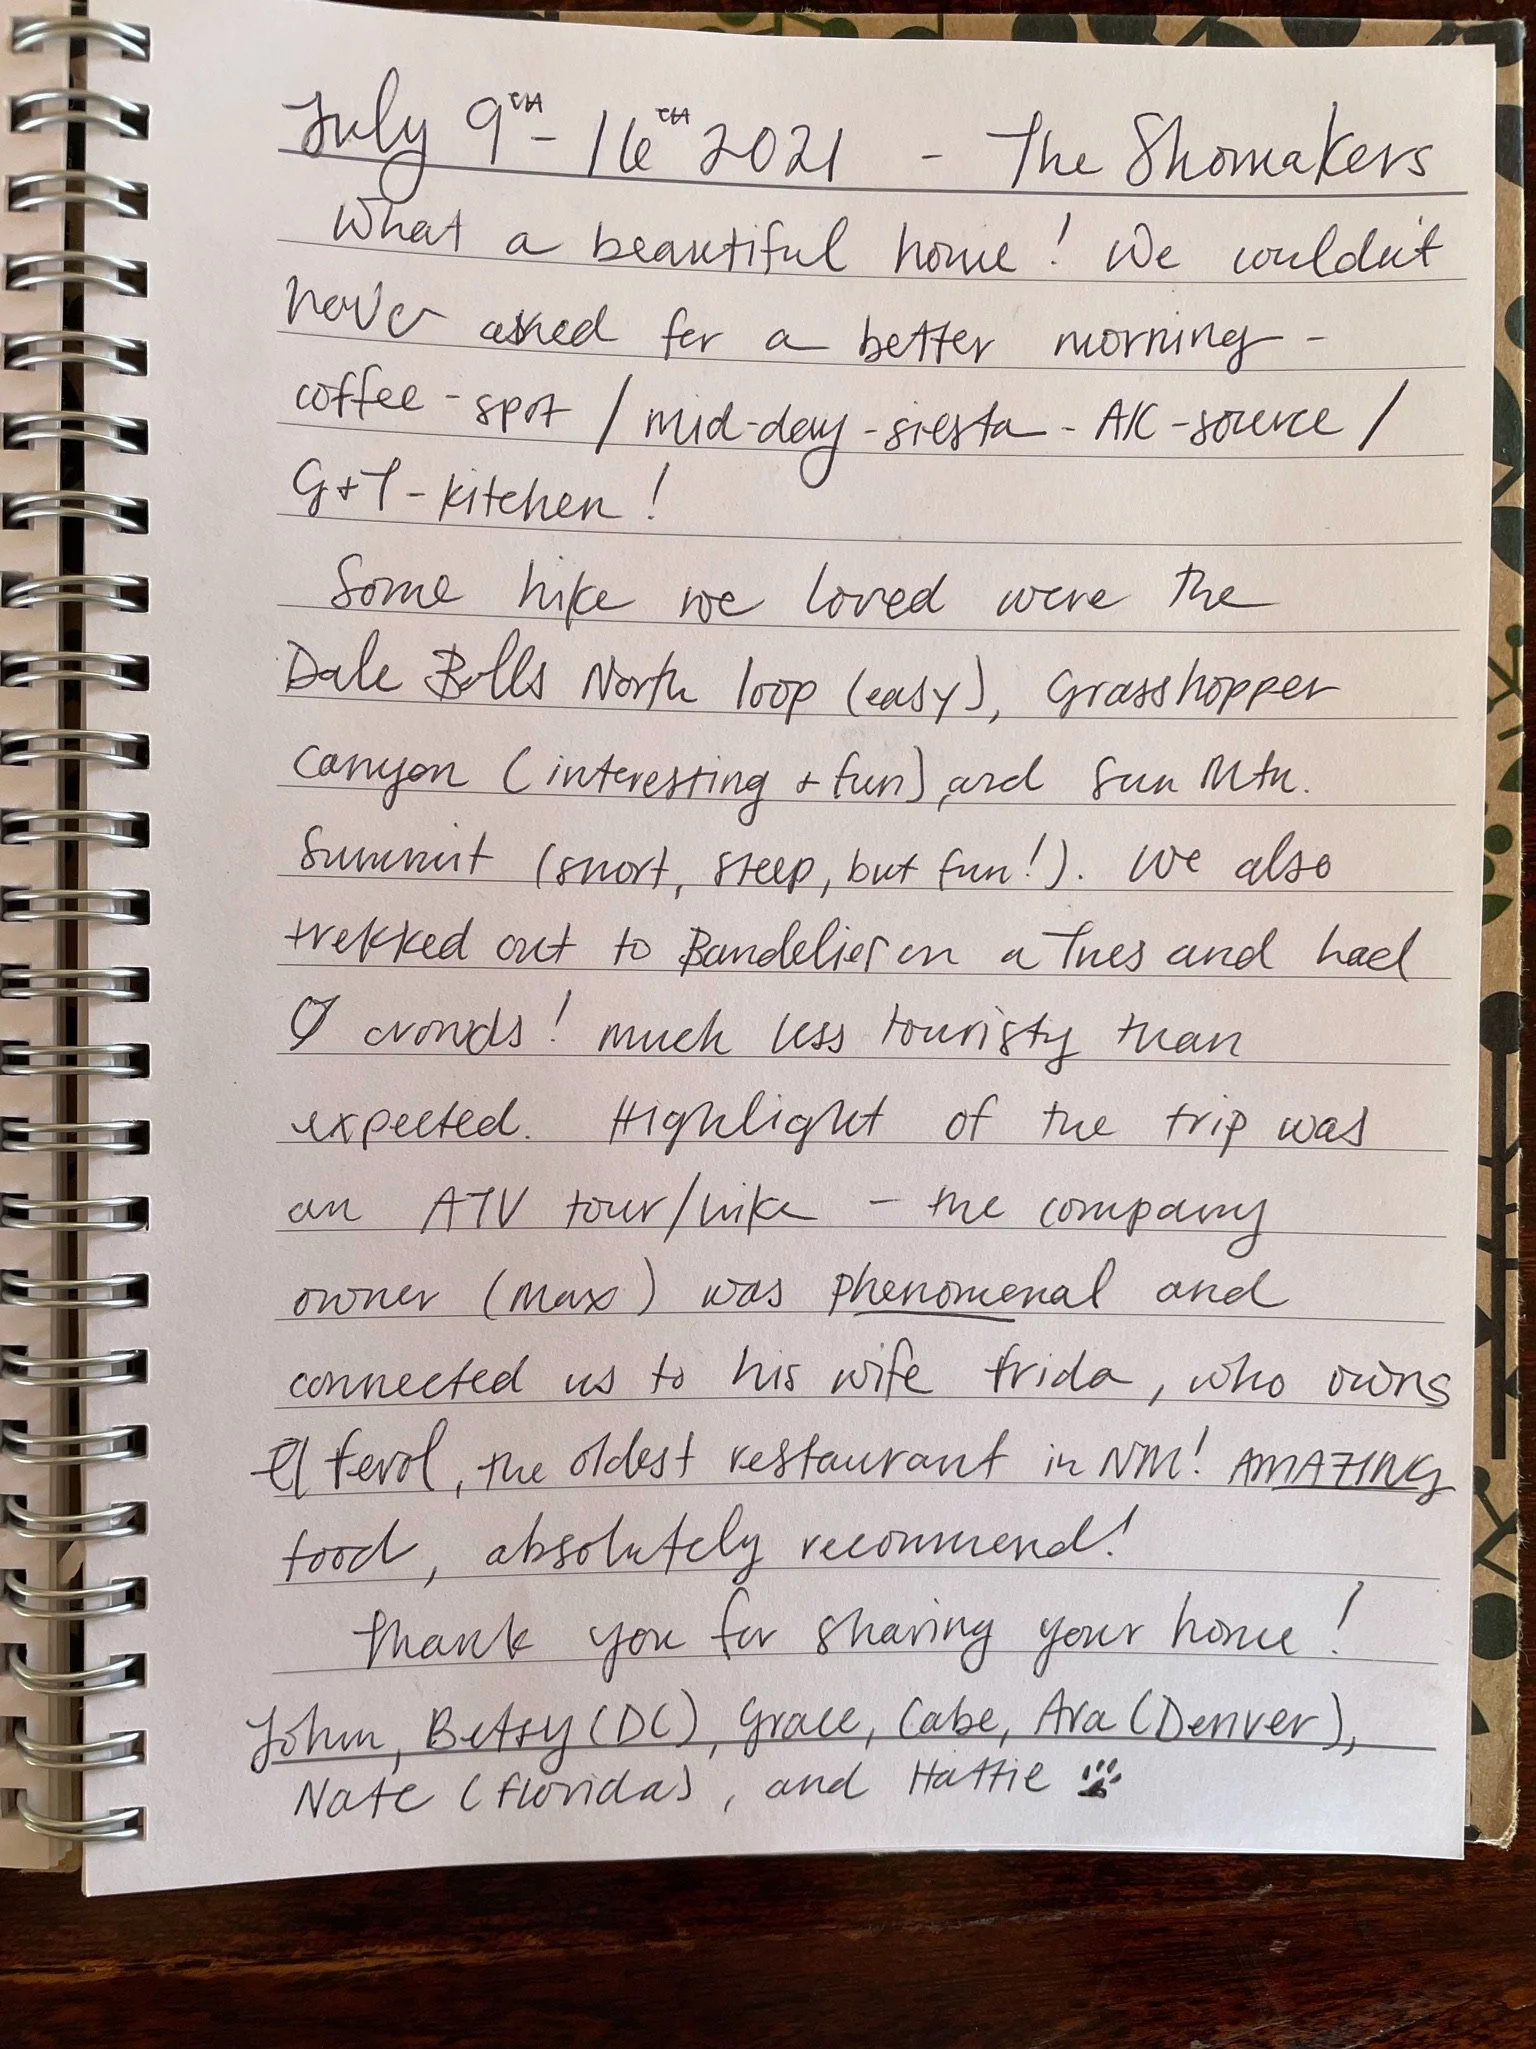 July 9TH - 16TH 2021 - The Shomakers
What a beautiful home! We couldn't
have asked for a better morning -
coffee - spot / mid-day - siesta - A/C - source /
G+T - kitchen!
Some hike we loved were the
Dale Balls North loop (easy), Grasshopper
Canyon (interesting + fun), and Sun Mtn.
Summit (short, steep, but fun!). We also
trekked out to Bandelier on a Tues and had
Ø crowds! Much less touristy than
expected. Highlight of the trip was
an ATV tour/hike - the company
owner (Max) was phenomenal and
connected us to his wife Frida, who owns
El Ferol, the oldest restaurant in NM! AMAZING
food, absolutely recommend!
Thank you for sharing your home!
John, Betsy (DC), Grace, Cabe, Ava (Denver),
Nate (Florida), and Hattie